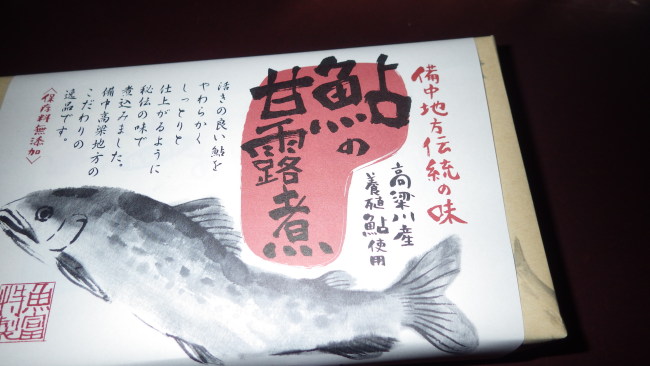 備中地方伝統の味
鮎の
甘露煮
高梁川産
養殖鮎使用
活きの良い鮎を
やわらかく
しっとりと
仕上がるように
秘伝の味で
煮込みました。
備中高梁地方の
こだわりの
逸品です。
〈保存料無添加〉
魚富
特製